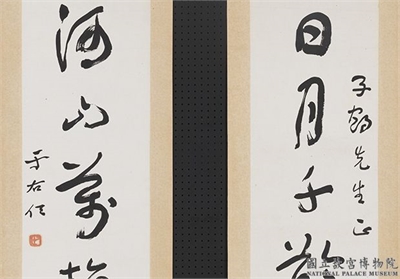 子鶴先生正
日月千
河山萬
于右任
國立故宮博物院
NATIONAL PALACE MUSEUM